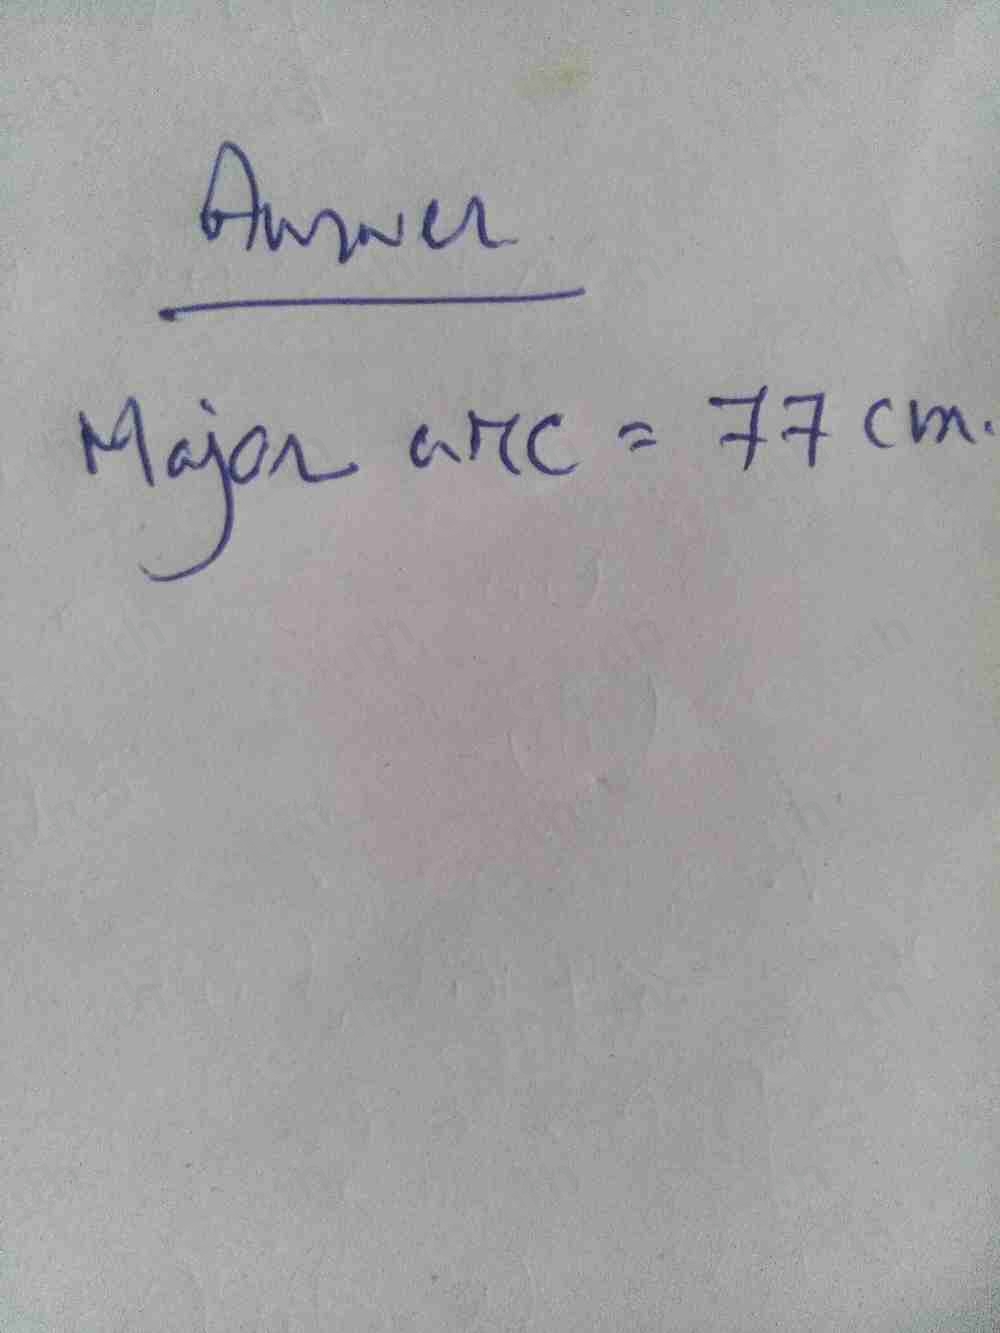 Answer
Major arc = 77 cm.